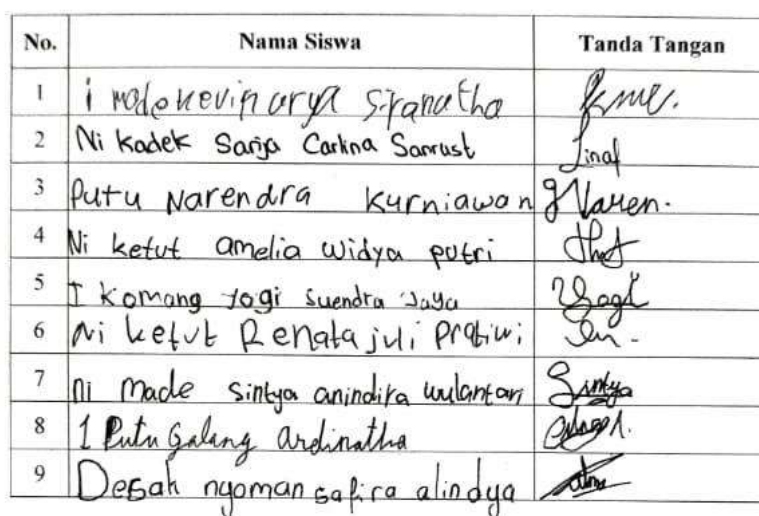 No. Nama Siswa Tanda Tangan
1 i made kevin arya
2 Ni Kadek
3 Putu Narendra Kurniawan Naren.
4 Ni ketut amelia widya putri
5 I Komang Yogi Suendra Jaya Yogi
6 Ni ketut Renata juli Pratiwi
7 ni made sintya anindita wulantari Sintya
8 I Putu Galang ardinatha
9 Desak nyoman safira alindya